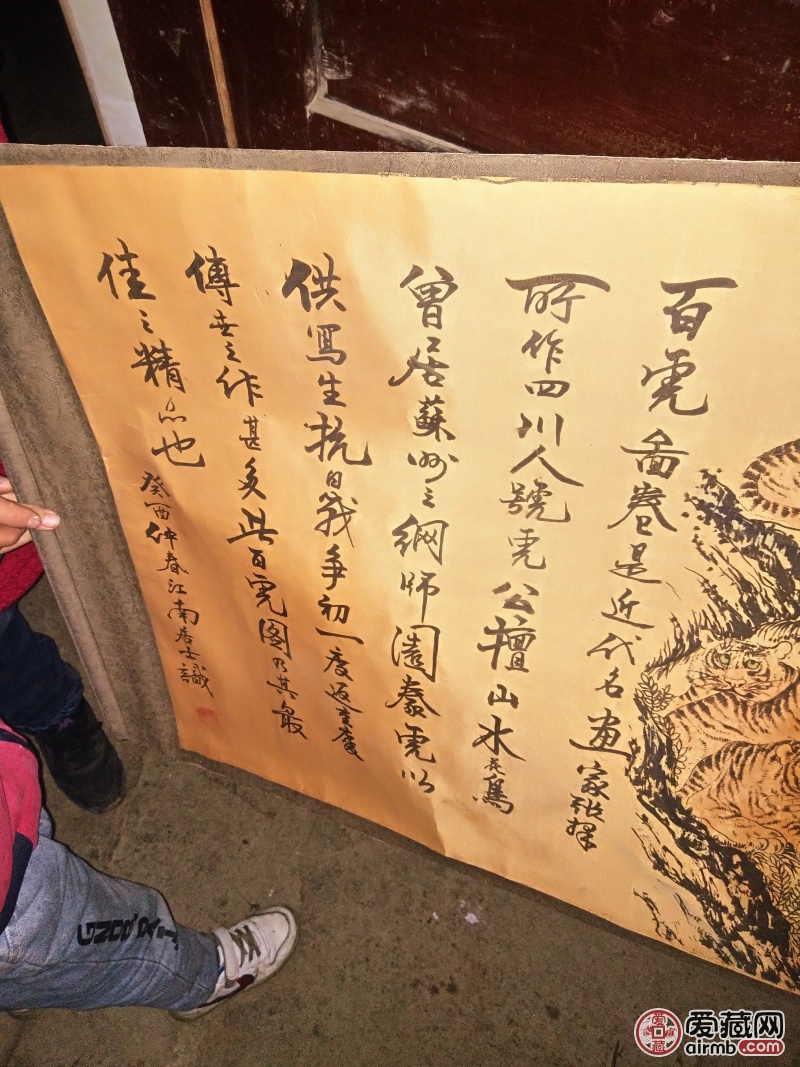 百虎圖卷是近代名画家張善
所作四川人號虎公擅山水花鳥
曾居蘇州之網師園豢虎以
供寫生抗日戰争初一度返重慶
傳世之作甚多此百虎图乃其最
佳之精品也
癸酉仲春江南居士識
爱藏网
airmb.com